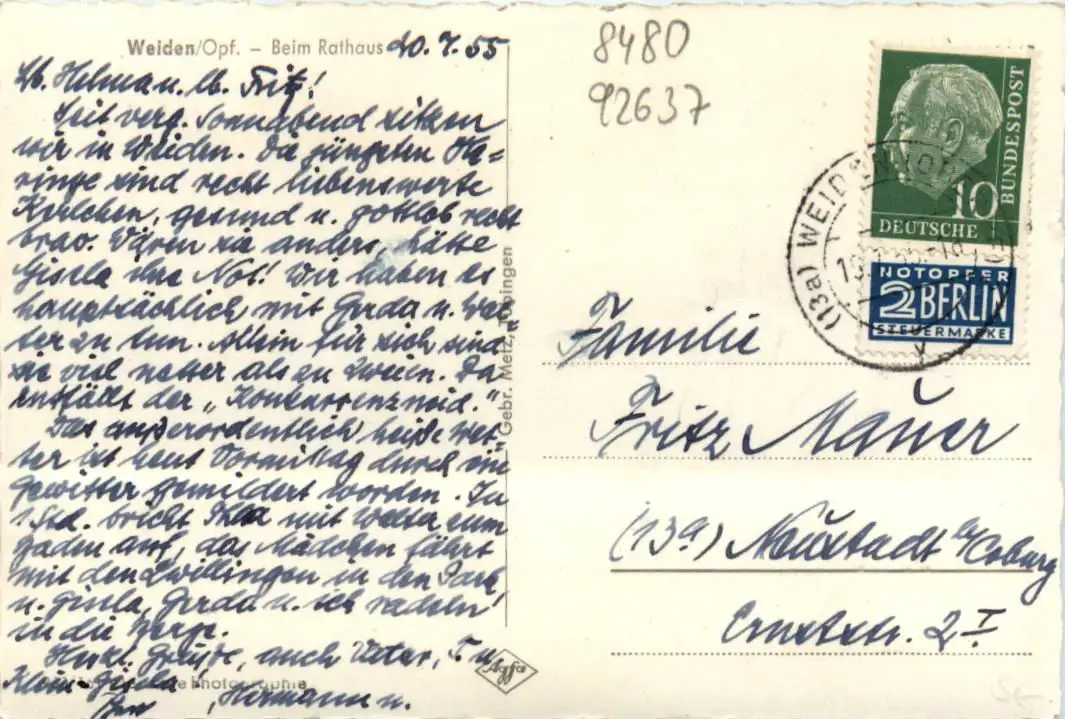 Weiden/Opf. – Beim Rathaus 20.7.55
Lb. Helma u. lb. Fritz!
Seit verg. Sonnabend sitzen
wir in Weiden. Die jüngsten Ha=
ringe sind recht liebenswerte
Kerlchen, gesund u. gottlob recht
brav. Wären sie anders, hätte
Gisela ihre Not! Wir haben es
hauptsächlich mit Gerda u. Wal-
ter zu tun. Allein für sich sind
sie viel netter als zu zweien. Da
entfällt der „Konkurrenzneid."
Das außerordentlich heiße Wet-
ter ist heut Vormittag durch ein
Gewitter gemildert worden. In
1 Std. bricht mit Walter zum
Baden auf, das Mädchen fährt
mit den Zwillingen in den Park
u. Gisela, Gerda u. ich radeln
in die Berge.
Herzl. Grüße, auch Vater, T. u.
Klein-Gisela!
Hermann u.
Gebr. Metz, Tübingen
Agfa
Photographie
8480
92637
DEUTSCHE BUNDESPOST
10
NOTOPFER
2 BERLIN
STEUERMARKE
(13a) WEIDEN
Familie
Fritz Mauer
(13a) Neustadt b/Coburg
Ernststr. 2 I